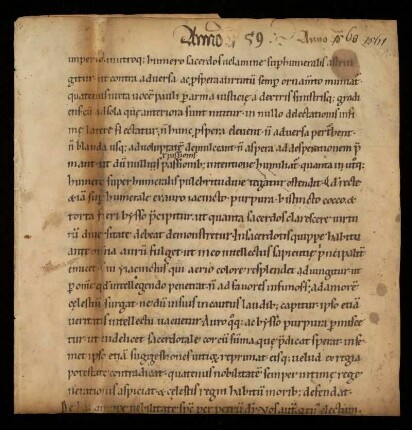 Anno 59. Anno 1560 1561
imperio in utroq; humero sacerdos uelamine sup humeralis astrin
gitur. ut contra aduersa ac pspera uirtutū semp ornamto muniat
quatenus iuxta uocē pauli p arma iusticię a dextris sinistrisq; gradi
ens cū ad sola quę anteriora sunt nititur. in nullo delectationis infi
mę latere
n hunc pspera eleuent. n aduersa pturbent.
n blanda usq; ad uoluptatē demulceant. n aspera ad desperationem p
mant. ut dū nullis passionib; intentionē humiliat. quanta in utroq;
humero sup humeralis pulchritudine tegatur ostendat. Qd recte
etiā sup humerale ex auro iacincto. purpura. bis tincto cocco. &
torta fieri bysso pcipitur. ut quanta sacerdos clarescere uirtu
tū diuersitate debeat demonstretur. In sacerdotis quippe habitu
ante omia aurū fulget. ut in eo intellectus sapientię principaliter
emicet. cui iacinctus qui aerio colore resplendet adiungitur. ut
p omē qd intellegendo penetrat. n ad fauores infimos. s; ad amorē
cęlestiū surgat. ne dū incautus suis laudib; capitur. ipso etiā
ueritatis intellectu uacuetur. Auro qq; ac bysso purpura pmisce
tur. ut uidelicet sacerdotale cor cū sūma quę pdicat sperat. in se
met ipso etiā suggestiones uitiorū reprimat. eisq; uelud ex regia
potestate contradicat. quatenus nobilitatē semper intimę rege
nerationis aspiciat. & cęlestis regni habitū morib; defendat.
De hac quippe nobilitate sps per petrū dr. Vos autē gen electum.